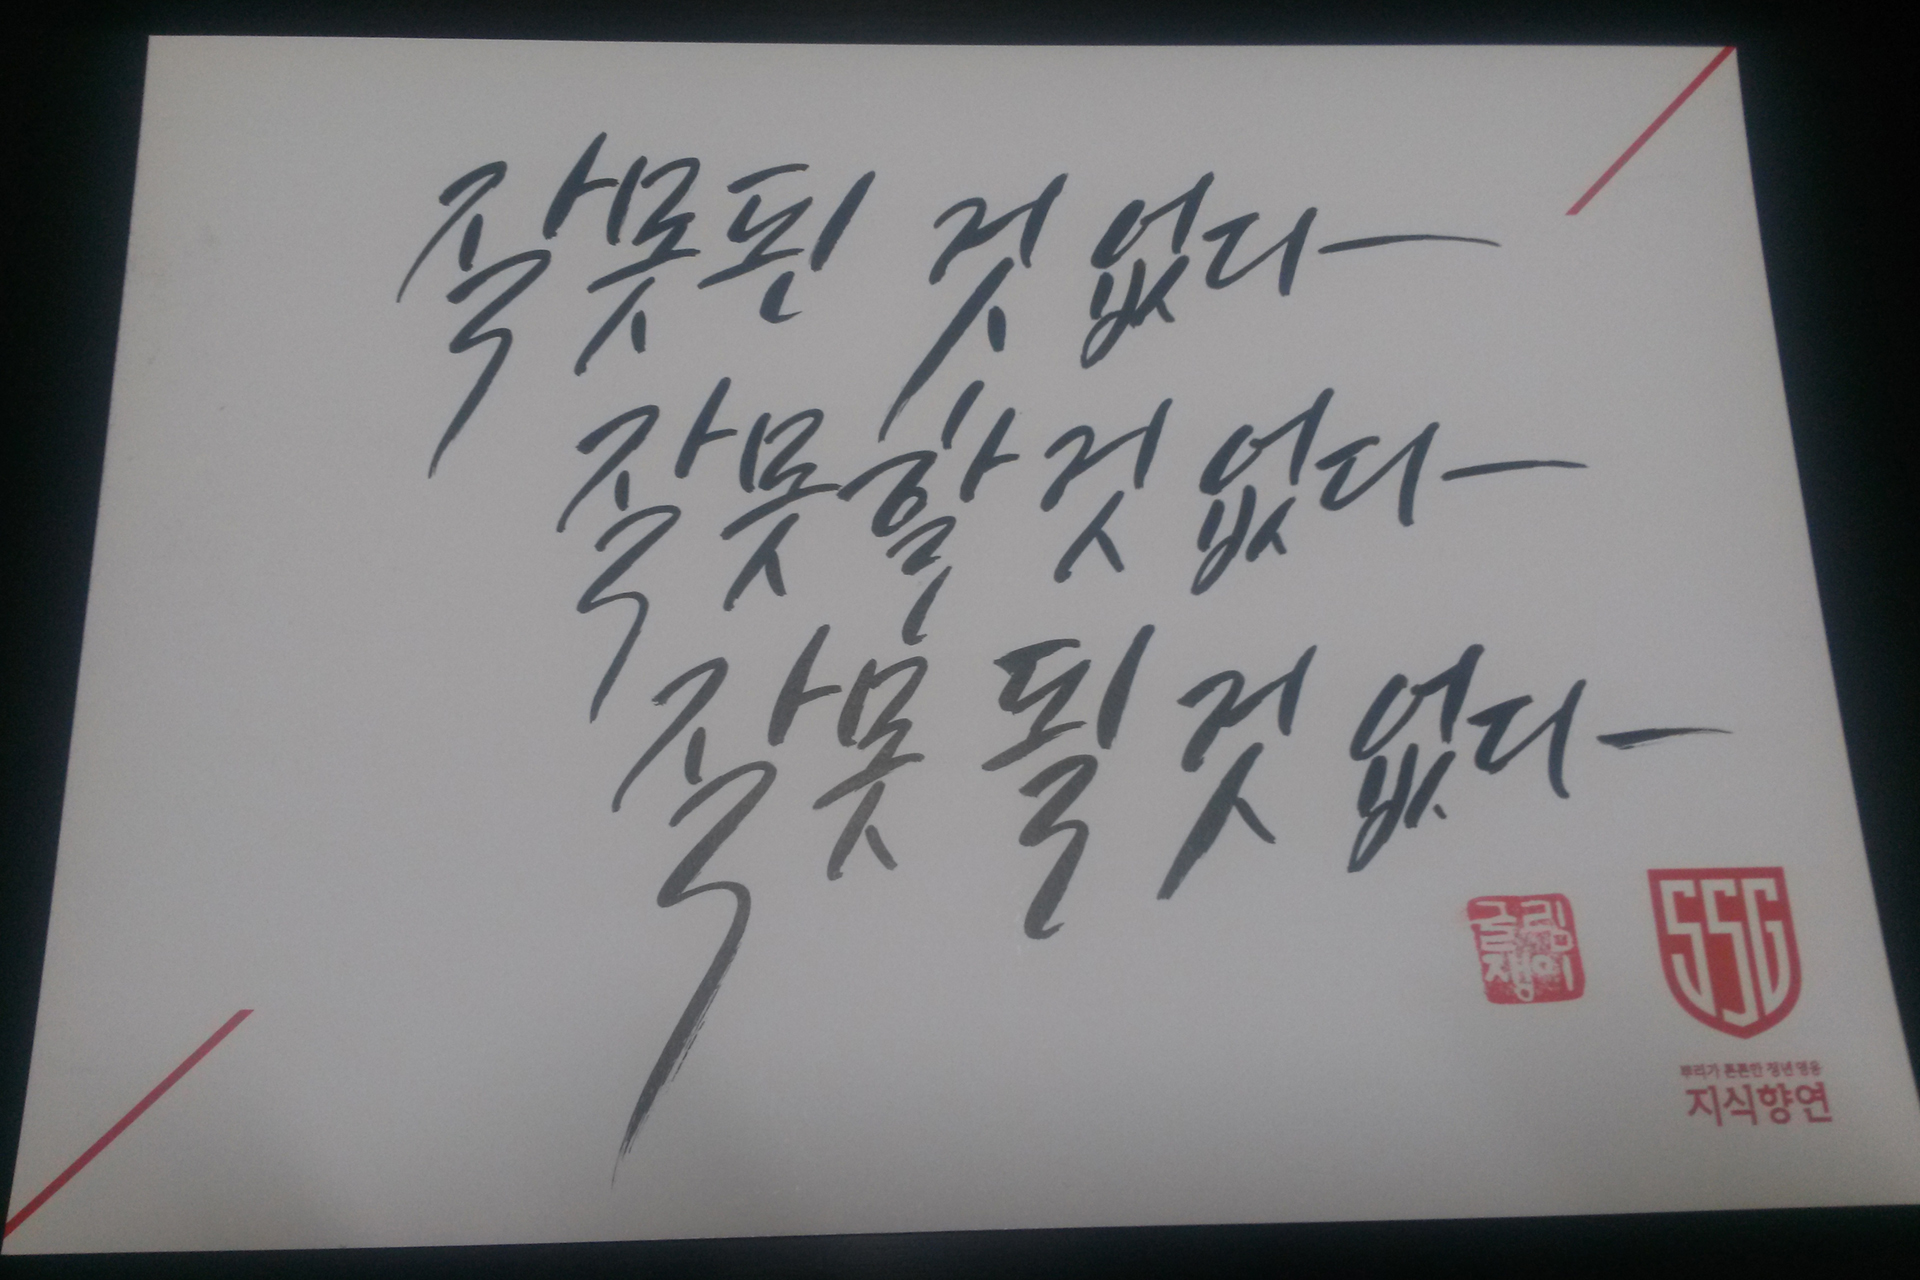 잘못된 것 없다
잘못할 것 없다
잘못 될 것 없다
글림
쟁이
SSG
뿌리가 튼튼한 청년 영웅
지식향연